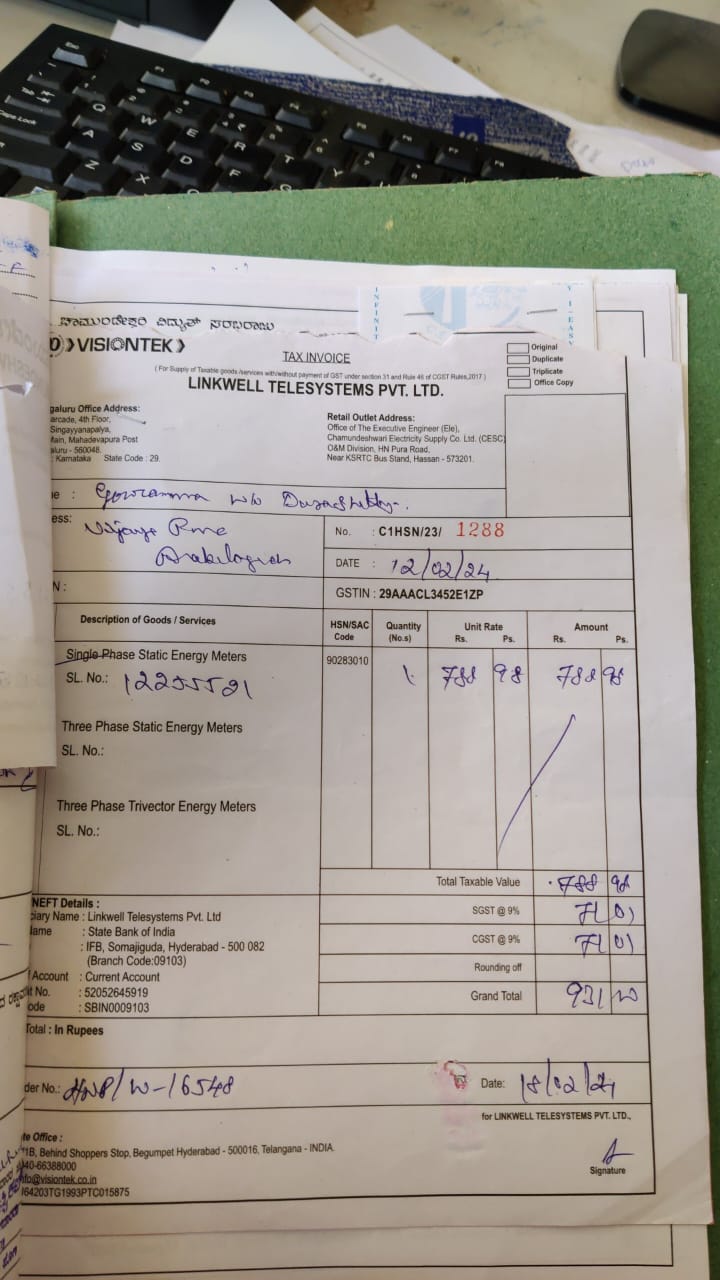 ಚಾಮುಂಡೇಶ್ವರಿ ವಿದ್ಯುತ್ ಸರಬರಾಜು
VISIONTEK
TAX INVOICE
( For Supply of Taxable goods /services with/without payment of GST under section 31 and Rule 46 of CGST Rules,2017 )
LINKWELL TELESYSTEMS PVT. LTD.
Original
Duplicate
Triplicate
Office Copy
galuru Office Address:
arcade, 4th Floor,
Singayyanapalya,
Main, Mahadevapura Post
aluru - 560048.
: Karnataka State Code : 29.
Retail Outlet Address:
Office of The Executive Engineer (Ele),
Chamundeshwari Electricity Supply Co. Ltd. (CESC)
O&M Division, HN Pura Road,
Near KSRTC Bus Stand, Hassan - 573201.
e : Gowramma w/o
ess:
No. : C1HSN/23/ 1288
DATE : 12/02/24
N :
GSTIN : 29AAACL3452E1ZP
Description of Goods / Services
HSN/SAC Code
Quantity (No.s)
Unit Rate
Rs. Ps.
Amount
Rs. Ps.
Single Phase Static Energy Meters
90283010 1 788 98 788 98
SL. No.: 12255521
Three Phase Static Energy Meters
SL. No.:
Three Phase Trivector Energy Meters
SL. No.:
Total Taxable Value 788 98
SGST @ 9% 71 01
CGST @ 9% 71 01
Rounding off
Grand Total 931 00
NEFT Details :
ciary Name : Linkwell Telesystems Pvt. Ltd
lame : State Bank of India
: IFB, Somajiguda, Hyderabad - 500 082
(Branch Code:09103)
Account : Current Account
t No. : 52052645919
ode : SBIN0009103
Total : In Rupees
der No.: HNP/W-16548
Date: 18/02/24
for LINKWELL TELESYSTEMS PVT. LTD.,
Signature
te Office :
1B, Behind Shoppers Stop, Begumpet Hyderabad - 500016, Telangana - INDIA.
40-66388000
nfo@visiontek.co.in
64203TG1993PTC015875